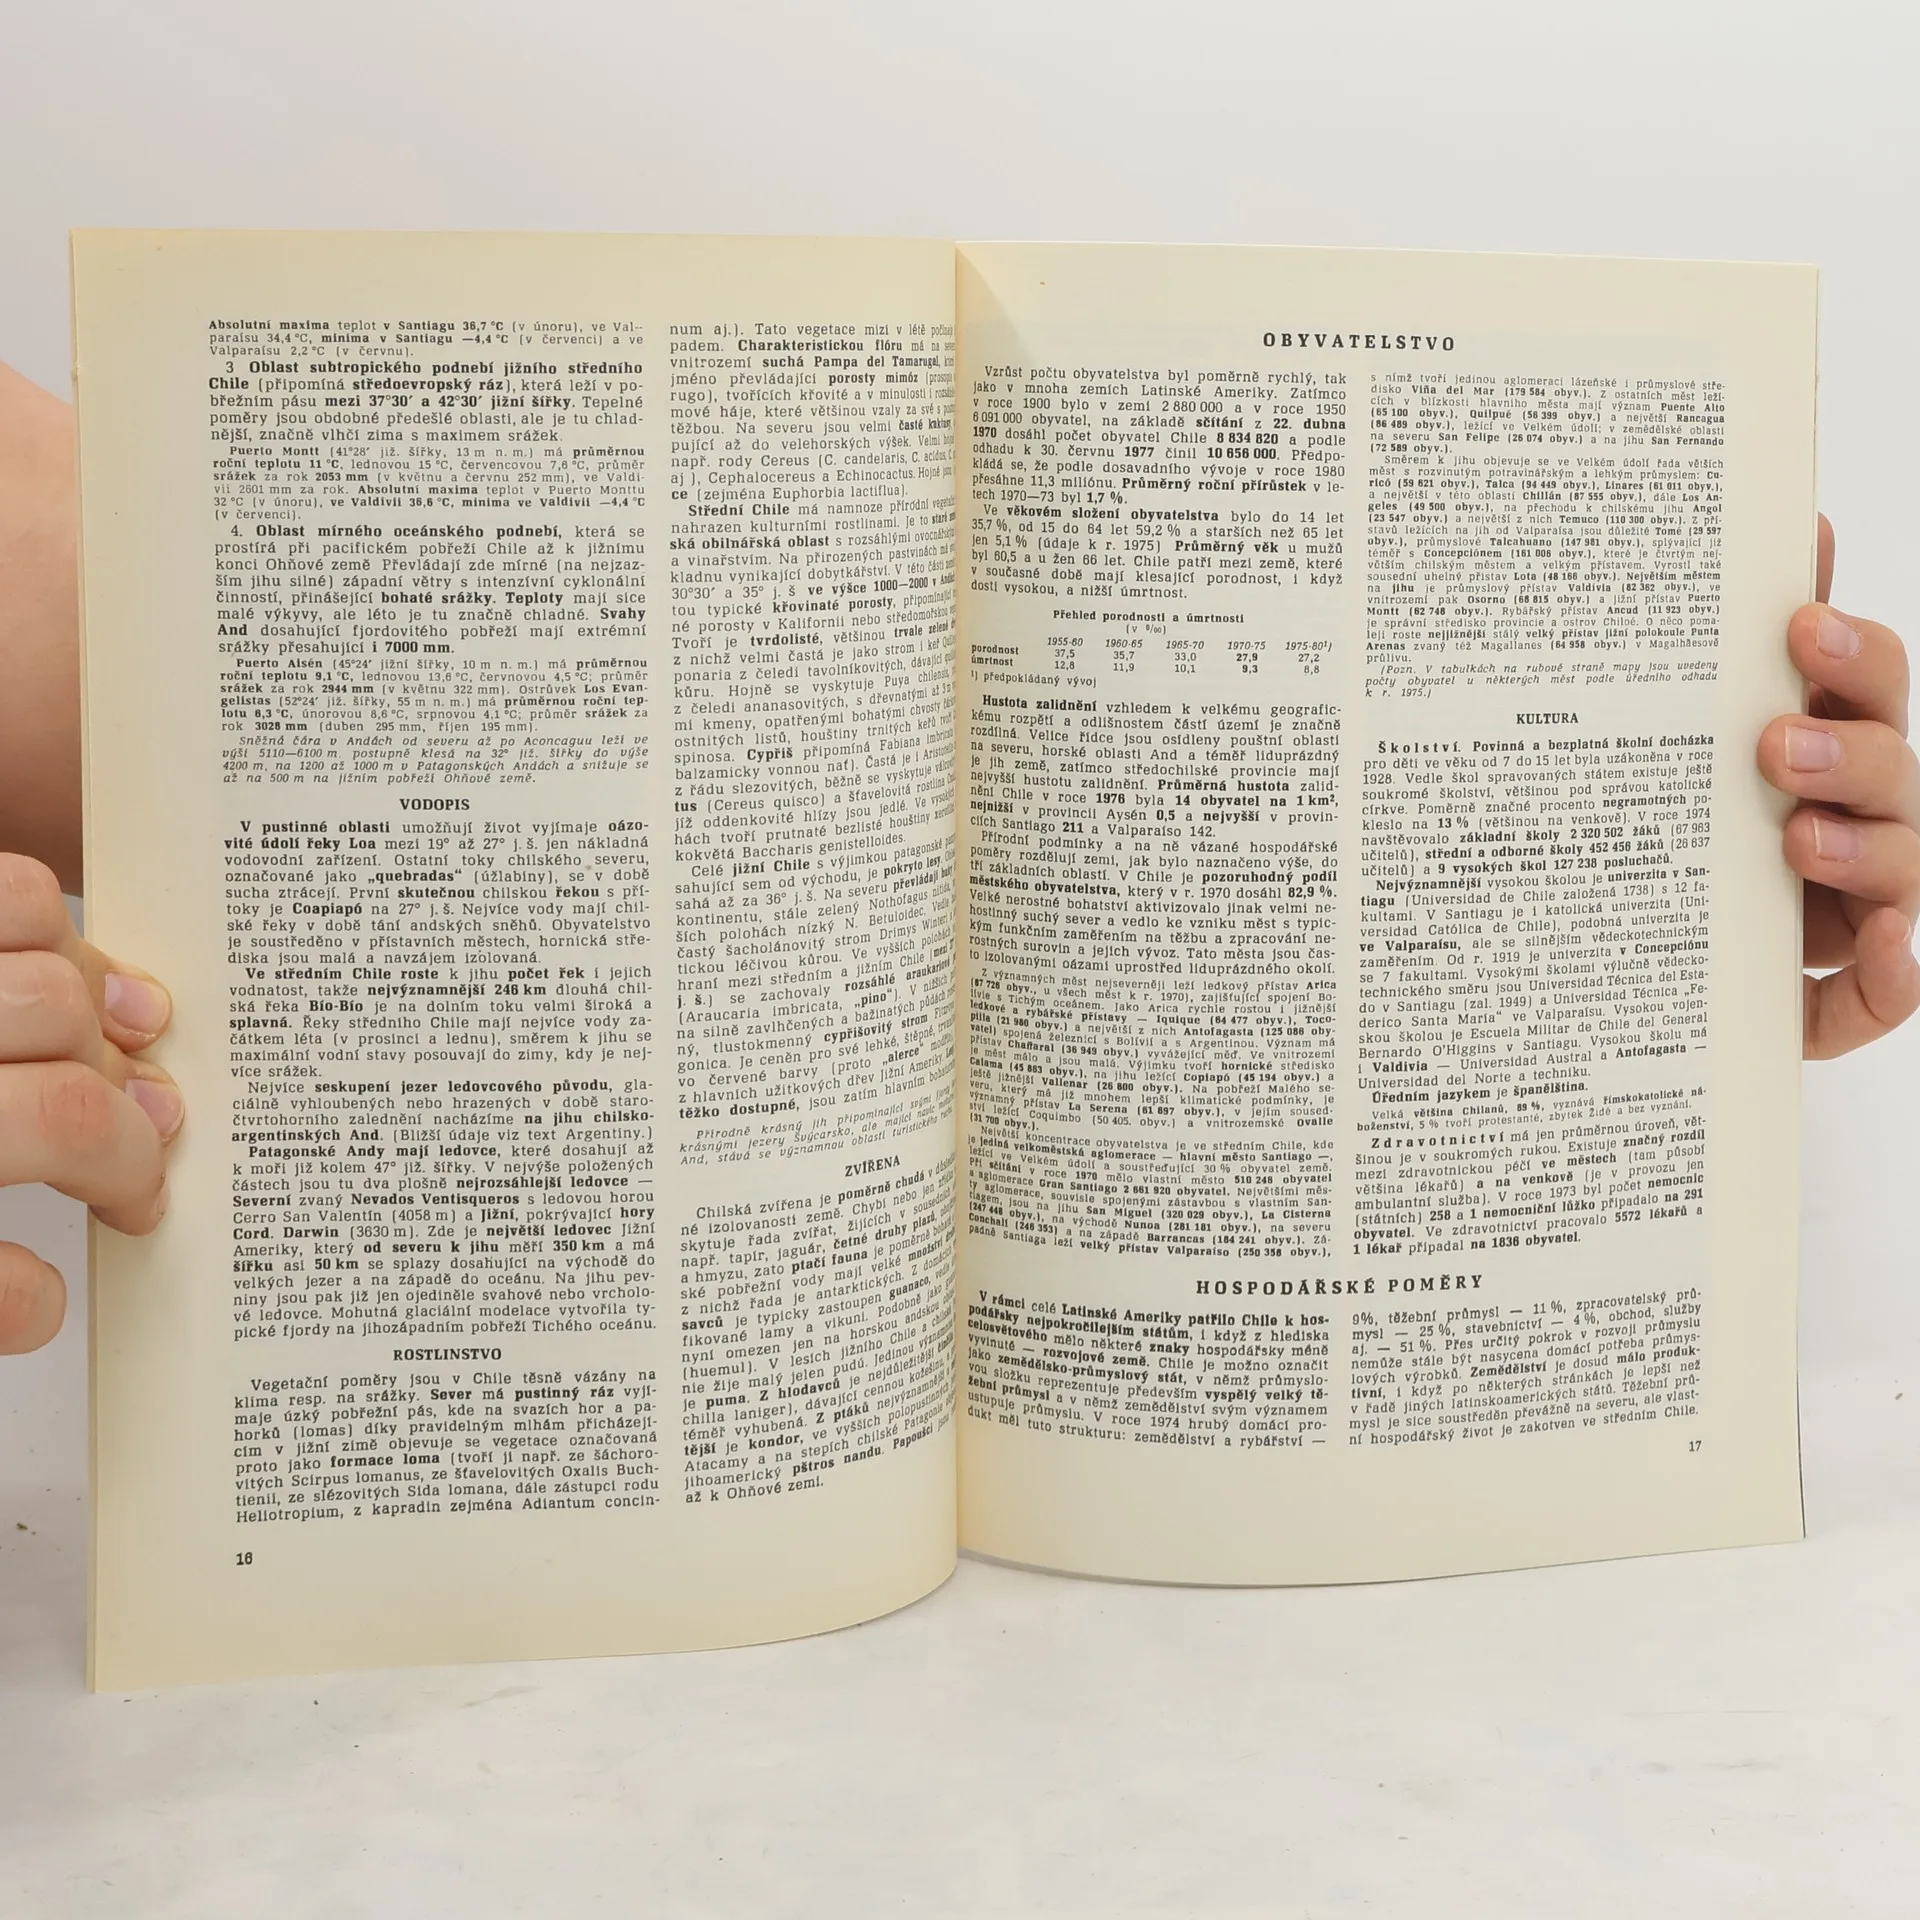 Absolutní maxima teplot v Santiagu 36,7 °C (v únoru), ve Val-
paraísu 34,4 °C, minima v Santiagu —4,4 °C (v červenci) a ve
Valparaísu 2,2 °C (v červnu).
3 Oblast subtropického podnebí jižního středního
Chile (připomíná středoevropský ráz), která leží v po-
břežním pásu mezi 37°30′ a 42°30′ jižní šířky. Tepelné
poměry jsou obdobné předešlé oblasti, ale je tu chlad-
nější, značně vlhčí zima s maximem srážek.
Puerto Montt (41°28′ již. šířky, 13 m n. m.) má průměrnou
roční teplotu 11 °C, lednovou 15 °C, červencovou 7,6 °C, průměr
srážek za rok 2053 mm (v květnu a červnu 252 mm), ve Valdi-
vii 2601 mm za rok. Absolutní maxima teplot v Puerto Monttu
32 °C (v únoru), ve Valdivii 36,6 °C, minima ve Valdivii —4,4 °C
(v červenci).
4. Oblast mírného oceánského podnebí, která se
prostírá při pacifickém pobřeží Chile až k jižnímu
konci Ohňové země Převládají zde mírné (na nejzaz-
ším jihu silné) západní větry s intenzívní cyklonální
činností, přinášející bohaté srážky. Teploty mají sice
malé výkyvy, ale léto je tu značně chladné. Svahy
And dosahující fjordovitého pobřeží mají extrémní
srážky přesahující i 7000 mm.
Puerto Aisén (45°24′ jižní šířky, 10 m n. m.) má průměrnou
roční teplotu 9,1 °C, lednovou 13,6 °C, červnovou 4,5 °C; průměr
srážek za rok 2944 mm (v květnu 322 mm). Ostrůvek Los Evan-
gelistas (52°24′ již. šířky, 55 m n. m.) má průměrnou roční tep-
lotu 6,3 °C, únorovou 8,6 °C, srpnovou 4,1 °C; průměr srážek za
rok 3028 mm (duben 295 mm, říjen 195 mm).
Sněžná čára v Andách od severu až po Aconcaguu leží ve
výši 5110—6100 m, postupně klesá na 32° již. šířky do výše
4200 m, na 1200 až 1000 m v Patagonských Andách a snižuje se
až na 500 m na jižním pobřeží Ohňové země.
VODOPIS
V pustinné oblasti umožňují život vyjímaje oázo-
vité údolí řeky Loa mezi 19° až 27° j. š. jen nákladná
vodovodní zařízení. Ostatní toky chilského severu,
označované jako „quebradas“ (úžlabiny), se v době
sucha ztrácejí. První skutečnou chilskou řekou s pří-
toky je Coapiapó na 27° j. š. Nejvíce vody mají chil-
ské řeky v době tání andských sněhů. Obyvatelstvo
je soustředěno v přístavních městech, hornická stře-
diska jsou malá a navzájem izolovaná.
Ve středním Chile roste k jihu počet řek i jejich
vodnatost, takže nejvýznamnější 246 km dlouhá chil-
ská řeka Bío-Bío je na dolním toku velmi široká a
splavná. Řeky středního Chile mají nejvíce vody za-
čátkem léta (v prosinci a lednu), směrem k jihu se
maximální vodní stavy posouvají do zimy, kdy je nej-
více srážek.
Nejvíce seskupení jezer ledovcového původu, gla-
ciálně vyhloubených nebo hrazených v době staro-
čtvrtohorního zalednění nacházíme na jihu chilsko-
argentinských And. (Bližší údaje viz text Argentiny.)
Patagonské Andy mají ledovce, které dosahují až
k moři již kolem 47° již. šířky. V nejvýše položených
částech jsou tu dva plošně nejrozsáhlejší ledovce —
Severní zvaný Nevados Ventisqueros s ledovou horou
Cerro San Valentín (4058 m) a Jižní, pokrývající hory
Cord. Darwin (3630 m). Zde je největší ledovec Jižní
Ameriky, který od severu k jihu měří 350 km a má
šířku asi 50 km se splazy dosahující na východě do
velkých jezer a na západě do oceánu. Na jihu pev-
niny jsou pak již jen ojediněle svahové nebo vrcholo-
vé ledovce. Mohutná glaciální modelace vytvořila ty-
pické fjordy na jihozápadním pobřeží Tichého oceánu.
ROSTLINSTVO
Vegetační poměry jsou v Chile těsně vázány na
klima resp. na srážky. Sever má pustinný ráz vyjí-
maje úzký pobřežní pás, kde na svazích hor a pa-
horků (lomas) díky pravidelným mlhám přicházejí-
cím v jižní zimě objevuje se vegetace označovaná
proto jako formace loma (tvoří ji např. ze šáchoro-
vitých Scirpus lomanus, ze šťavelovitých Oxalis Buch-
tienii, ze slézovitých Sida lomana, dále zástupci rodu
Heliotropium, z kapradin zejména Adiantum concin-
16
num aj.). Tato vegetace mizí v létě
padem. Charakteristickou flóru má na
vnitrozemí suchá Pampa del Tamarugal,
jméno převládající porosty mimóz
rugo), tvořících křovité a v minulosti i
mové háje, které většinou vzaly za své s
těžbou. Na severu jsou velmi časté
pující až do velehorských výšek. Velmi
např. rody Cereus (C. candelaris, C. acidus,
aj ), Cephalocereus a Echinocactus. Hojné
ce (zejména Euphorbia lactiflua).
Střední Chile má namnoze přírodní
nahrazen kulturními rostlinami. Je to
ská obilnářská oblast s rozsáhlými
a vinařstvím. Na přirozených pastvinách má
kladnu vynikající dobytkářství. V této části
30°30′ a 35° j. š ve výšce 1000—2000 v
tou typické křovinaté porosty,
né porosty v Kalifornii nebo
Tvoří je tvrdolisté, většinou trvale zelené
z nichž velmi častá je jako strom i keř
ponaria z čeledi tavolníkovitých,
kůru. Hojně se vyskytuje Puya chilensis,
z čeledi ananasovitých, s dřevnatými až
mi kmeny, opatřenými bohatými chvosty
ostnitých listů, houštiny trnitých keřů tvoří
spinosa. Cypřiš připomíná Fabiana imbricata
balzamicky vonnou nať). Častá je i
z řádu slezovitých, běžně se vyskytuje
tus (Cereus quisco) a šťavelovitá rostlina
jíž oddenkovité hlízy jsou jedlé. Ve
hách tvoří prutnaté bezlisté houštiny
kokvětá Baccharis genistelloides.
Celé jižní Chile s výjimkou patagonské
sahující sem od východu, je pokryto lesy.
sahá až za 36° j. š. Na severu převládají
kontinentu, stále zelený Nothofagus nitida,
ších polohách nízký N. Betuloidec.
častý šacholánovitý strom Drimys Winteri
tickou léčivou kůrou. Ve vyšších polohách
hraní mezi středním a jižním Chile
j. š.) se zachovaly rozsáhlé
(Araucaria imbricata, „pino“). V nižších
na silně zavlhčených a bažinatých půdách
ný, tlustokmenný cypřišovitý strom
gonica. Je ceněn pro své lehké, štěpné,
vo červené barvy (proto „alerce“
z hlavních užitkových dřev Jižní Ameriky.
těžko dostupné, jsou zatím hlavním
Přírodně krásný jih připomínající svými
krásnými jezery Švýcarsko, ale mající navíc
And, stává se významnou oblastí turistického
ZVÍŘENA
Chilská zvířena je poměrně chudá v
né izolovanosti země. Chybí nebo jen
skytuje řada zvířat, žijících v sousedních
např. tapír, jaguár, četné druhy plazů,
a hmyzu, zato ptačí fauna je poměrně
ské pobřežní vody mají velké množství
z nichž řada je antarktických. Z
savců je typicky zastoupen guanaco,
fikované lamy a vikuni. Podobně jako
nyní omezen jen na horskou andskou
(huemul). V lesích jižního Chile a
nie žije malý jelen pudú. Jedinou
je puma. Z hlodavců je nejdůležitější
chilla laniger), dávající cennou kožešinu,
téměř vyhubená. Z ptáků nejvýznamnější
tější je kondor, ve vyšších polopustinných
Atacamy a na stepích chilské Patagonie
jihoamerický pštros nandu. Papoušci
až k Ohňové zemi.
OBYVATELSTVO
Vzrůst počtu obyvatelstva byl poměrně rychlý, tak
jako v mnoha zemích Latinské Ameriky. Zatímco
v roce 1900 bylo v zemi 2 880 000 a v roce 1950
6 091 000 obyvatel, na základě sčítání z 22. dubna
1970 dosáhl počet obyvatel Chile 8 834 820 a podle
odhadu k 30. červnu 1977 činil 10 656 000. Předpo-
kládá se, že podle dosavadního vývoje v roce 1980
přesáhne 11,3 miliónu. Průměrný roční přírůstek v le-
tech 1970—73 byl 1,7 %.
Ve věkovém složení obyvatelstva bylo do 14 let
35,7 %, od 15 do 64 let 59,2 % a starších než 65 let
jen 5,1 % (údaje k r. 1975) Průměrný věk u mužů
byl 60,5 a u žen 66 let. Chile patří mezi země, které
v současné době mají klesající porodnost, i když
dosti vysokou, a nižší úmrtnost.
Přehled porodnosti a úmrtnosti
(v ‰)
1955-60 1960-65 1965-70 1970-75 1975-80¹)
porodnost 37,5 35,7 33,0 27,9 27,2
úmrtnost 12,8 11,9 10,1 9,3 8,8
¹) předpokládaný vývoj
Hustota zalidnění vzhledem k velkému geografic-
kému rozpětí a odlišnostem částí území je značně
rozdílná. Velice řídce jsou osídleny pouštní oblasti
na severu, horské oblasti And a téměř liduprázdný
je jih země, zatímco středochilské provincie mají
nejvyšší hustotu zalidnění. Průměrná hustota zalid-
nění Chile v roce 1976 byla 14 obyvatel na 1 km²,
nejnižší v provincii Aysén 0,5 a nejvyšší v provin-
ciích Santiago 211 a Valparaíso 142.
Přírodní podmínky a na ně vázané hospodářské
poměry rozdělují zemi, jak bylo naznačeno výše, do
tří základních oblastí. V Chile je pozoruhodný podíl
městského obyvatelstva, který v r. 1970 dosáhl 82,9 %.
Velké nerostné bohatství aktivizovalo jinak velmi ne-
hostinný suchý sever a vedlo ke vzniku měst s typic-
kým funkčním zaměřením na těžbu a zpracování ne-
rostných surovin a jejich vývoz. Tato města jsou čas-
to izolovanými oázami uprostřed liduprázdného okolí.
Z významných měst nejseverněji leží ledkový přístav Arica
(87 726 obyv., u všech měst k r. 1970), zajišťující spojení Bo-
lívie s Tichým oceánem. Jako Arica rychle rostou i jižnější
ledkové a rybářské přístavy — Iquique (64 477 obyv.), Toco-
pilla (21 980 obyv.) a největší z nich Antofagasta (125 086 oby-
vatel) spojená železnicí s Bolívií a s Argentinou. Význam má
přístav Chañaral (36 949 obyv.) vyvážející měď. Ve vnitrozemí
je měst málo a jsou malá. Výjimku tvoří hornické středisko
Calama (45 863 obyv.), na jihu ležící Copiapó (45 194 obyv.) a
ještě jižnější Vallenar (26 800 obyv.). Na pobřeží Malého se-
veru, který má již mnohem lepší klimatické podmínky, je
významný přístav La Serena (61 897 obyv.), v jejím soused-
ství ležící Coquimbo (50 405. obyv.) a vnitrozemské Ovalle
(31 700 obyv.).
Největší koncentrace obyvatelstva je ve středním Chile, kde
je jediná velkoměstská aglomerace — hlavní město Santiago —,
ležící ve Velkém údolí a soustřeďující 30 % obyvatel země.
Při sčítání v roce 1970 mělo vlastní město 510 246 obyvatel
a aglomerace Gran Santiago 2 661 920 obyvatel. Největšími měs-
ty aglomerace, souvisle spojenými zástavbou s vlastním San-
tiagem, jsou na jihu San Miguel (320 029 obyv.), La Cisterna
(247 448 obyv.), na východě Nunoa (281 181 obyv.), na severu
Conchalí (246 353) a na západě Barrancas (184 241 obyv.). Zá-
padně Santiaga leží velký přístav Valparaíso (250 358 obyv.),
s nímž tvoří jedinou aglomeraci lázeňské i průmyslové stře-
disko Viña del Mar (179 584 obyv.). Z ostatních měst leží-
cích v blízkosti hlavního města mají význam Puente Alto
(65 100 obyv.), Quilpué (56 399 obyv.) a největší Rancagua
(86 489 obyv.), ležící ve Velkém údolí; v zemědělské oblasti
na severu San Felipe (26 074 obyv.) a na jihu San Fernando
(72 589 obyv.).
Směrem k jihu objevuje se ve Velkém údolí řada větších
měst s rozvinutým potravinářským a lehkým průmyslem: Cu-
ricó (59 621 obyv.), Talca (94 449 obyv.), Linares (61 011 obyv.),
a největší v této oblasti Chillán (87 555 obyv.), dále Los An-
geles (49 500 obyv.), na přechodu k chilskému jihu Angol
(23 547 obyv.) a největší z nich Temuco (110 300 obyv.). Z pří-
stavů ležících na jih od Valparaísa jsou důležité Tomé (29 597
obyv.), průmyslové Talcahuano (147 981 obyv.), splývající již
téměř s Concepciónem (161 006 obyv.), které je čtvrtým nej-
větším chilským městem a velkým přístavem. Vyrostl také
sousední uhelný přístav Lota (48 166 obyv.). Největším městem
na jihu je průmyslový přístav Valdivia (82 362 obyv.), ve
vnitrozemí pak Osorno (68 815 obyv.) a jižní přístav Puerto
Montt (62 748 obyv.). Rybářský přístav Ancud (11 923 obyv.)
je správní středisko provincie a ostrov Chiloé. O něco poma-
leji roste nejjižnější stálý velký přístav jižní polokoule Punta
Arenas zvaný též Magallanes (64 958 obyv.) v Magalhãesově
průlivu.
(Pozn. V tabulkách na rubové straně mapy jsou uvedeny
počty obyvatel u některých měst podle úředního odhadu
k r. 1975.)
KULTURA
Školství. Povinná a bezplatná školní docházka
pro děti ve věku od 7 do 15 let byla uzákoněna v roce
1928. Vedle škol spravovaných státem existuje ještě
soukromé školství, většinou pod správou katolické
církve. Poměrně značné procento negramotných po-
kleslo na 13 % (většinou na venkově). V roce 1974
navštěvovalo základní školy 2 320 502 žáků (67 963
učitelů), střední a odborné školy 452 456 žáků (26 637
učitelů) a 9 vysokých škol 127 238 posluchačů.
Nejvýznamnější vysokou školou je univerzita v San-
tiagu (Universidad de Chile založená 1738) s 12 fa-
kultami. V Santiagu je i katolická univerzita (Uni-
versidad Católica de Chile), podobná univerzita je
ve Valparaísu, ale se silnějším vědeckotechnickým
zaměřením. Od r. 1919 je univerzita v Concepciónu
se 7 fakultami. Vysokými školami výlučně vědecko-
technického směru jsou Universidad Técnica del Esta-
do v Santiagu (zal. 1949) a Universidad Técnica „Fe-
derico Santa María“ ve Valparaísu. Vysokou vojen-
skou školou je Escuela Militar de Chile del General
Bernardo O’Higgins v Santiagu. Vysokou školu má
i Valdivia — Universidad Austral a Antofagasta —
Universidad del Norte a techniku.
Úředním jazykem je španělština.
Velká většina Chilanů, 89 %, vyznává římskokatolické ná-
boženství, 5 % tvoří protestanté, zbytek Židé a bez vyznání.
Zdravotnictví má jen průměrnou úroveň, vět-
šinou je v soukromých rukou. Existuje značný rozdíl
mezi zdravotnickou péčí ve městech (tam působí
většina lékařů) a na venkově (je v provozu jen
ambulantní služba). V roce 1973 byl počet nemocnic
(státních) 258 a 1 nemocniční lůžko připadalo na 291
obyvatel. Ve zdravotnictví pracovalo 5572 lékařů a
1 lékař připadal na 1836 obyvatel.
HOSPODÁŘSKÉ POMĚRY
V rámci celé Latinské Ameriky patřilo Chile k hos-
podářsky nejpokročilejším státům, i když z hlediska
celosvětového mělo některé znaky hospodářsky méně
vyvinuté — rozvojové země. Chile je možno označit
jako zemědělsko-průmyslový stát, v němž průmyslo-
vou složku reprezentuje především vyspělý velký tě-
žební průmysl a v němž zemědělství svým významem
ustupuje průmyslu. V roce 1974 hrubý domácí pro-
dukt měl tuto strukturu: zemědělství a rybářství —
9%, těžební průmysl — 11 %, zpracovatelský prů-
mysl — 25 %, stavebnictví — 4 %, obchod, služby
aj. — 51 %. Přes určitý pokrok v rozvoji průmyslu
nemůže stále být nasycena domácí potřeba průmys-
lových výrobků. Zemědělství je dosud málo produk-
tivní, i když po některých stránkách je lepší než
v řadě jiných latinskoamerických států. Těžební prů-
mysl je sice soustředěn převážně na severu, ale vlast-
ní hospodářský život je zakotven ve středním Chile.
17